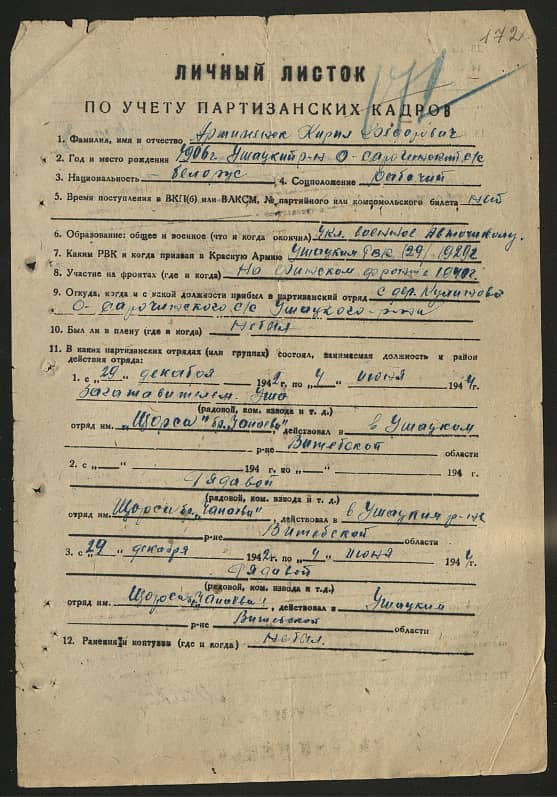 172
171
ЛИЧНЫЙ ЛИСТОК
ПО УЧЕТУ ПАРТИЗАНСКИХ КАДРОВ
1. Фамилия, имя и отчество Кирил
2. Год и место рождения 1906г Ушацкий р-н с/с
3. Национальность - белорус 4. Соцположение рабочий
5. Время поступления в ВКП(б) или ВЛКСМ, № партийного или комсомольского билета
6. Образование: общее и военное (что и когда окончил) 4 кл. военное
7. Каким РВК и когда призван в Красную Армию Ушацким РВК 1929г
8. Участие на фронтах (где и когда) На Финском фронте 1940г.
9. Откуда, когда и с какой должности прибыл в партизанский отряд с дер.
с/с Ушацкого р-на
10. Был ли в плену (где и когда) Небыл
11. В каких партизанских отрядах (или группах) состоял, занимаемая должность и район
действия отряда:
1. с „29" декабря 1942г. по „4" июня 1944г.
(рядовой, ком. взвода и т. д.)
отряд им. „Щорса" бр. Чапаева", действовал в в Ушацком
р-не Витебской области
2. с „ " 194 г. по „ " 194 г.
Рядавой
(рядовой, ком. взвода и т. д.)
отряд им. Щорса бр. „Чапаева", действовал в в Ушацким р-не
р-не Витебской области
3. с „29" декабря 1942г. по „4" июня 1944г.
Рядавой
(рядовой, ком. взвода и т.д.)
отряд им. Щорса бр. Чапаева", действовал в Ушацким
р-не Витебской области
12. Ранения и контузии (где и когда) Небыл.